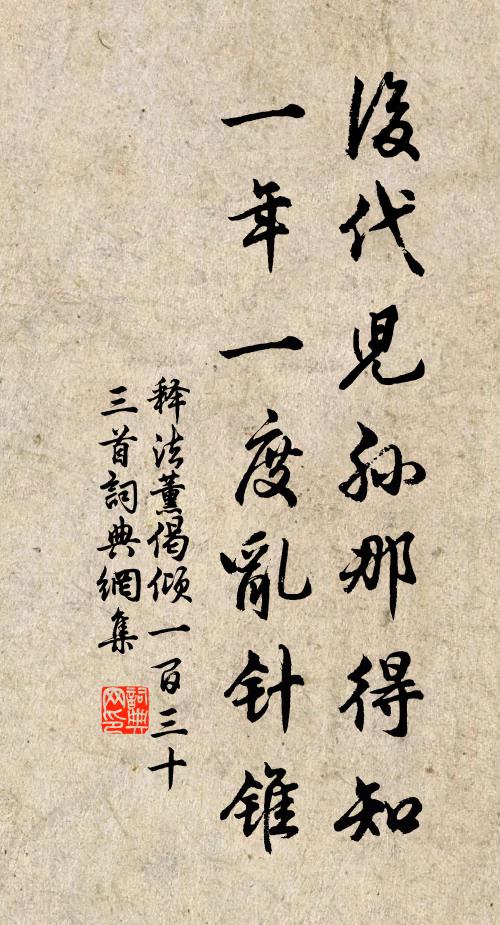 後代兒孫那得知
一年一度亂针錐
释法薰偈傾一百三十
三首詞典網集
詞典网印